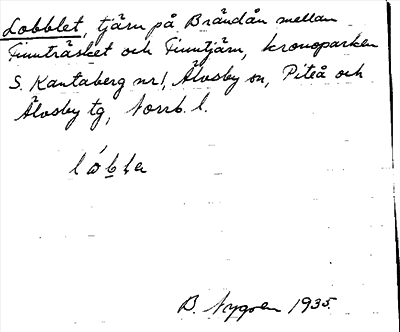 Lobblet, tjärn på Brändån mellan
Finnträsket och Finntjärn, kronoparken
S. Kantaberg nr 1, Älvsby sn, Piteå och
Älvsby tg, Norrb. l.
B. Nygren 1935